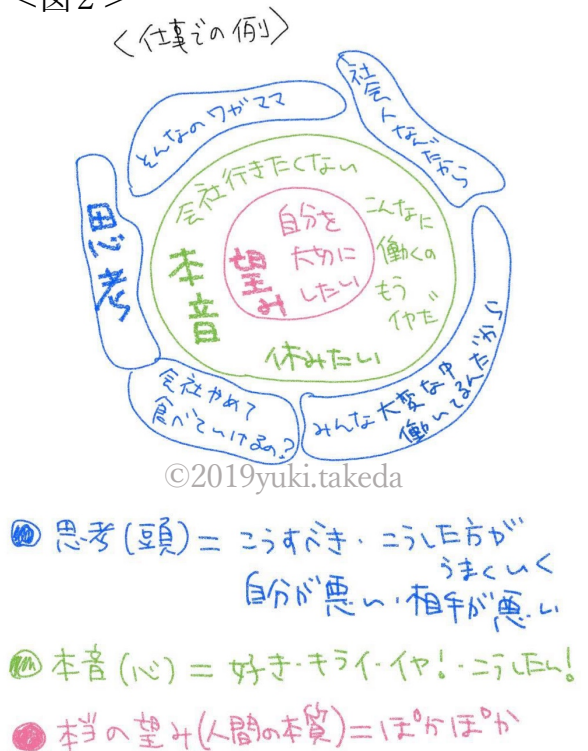 <図2>
<仕事での例>
そんなのワガママ
社会人なんだから
思考
会社行きたくない
こんなに
働くの
もう
イヤだ
本音
望み
自分を
大切に
したい
休みたい
会社やめて
食べていけるの?
みんな大変な中
働いてるんだから
©2019yuki.takeda
思考(頭)= こうすべき・こうした方が
うまくいく
自分が悪い・相手が悪い
本音(心)= 好き・キライ・イヤ!・こうしたい!
本当の望み(人間の本質)=ぽかぽか